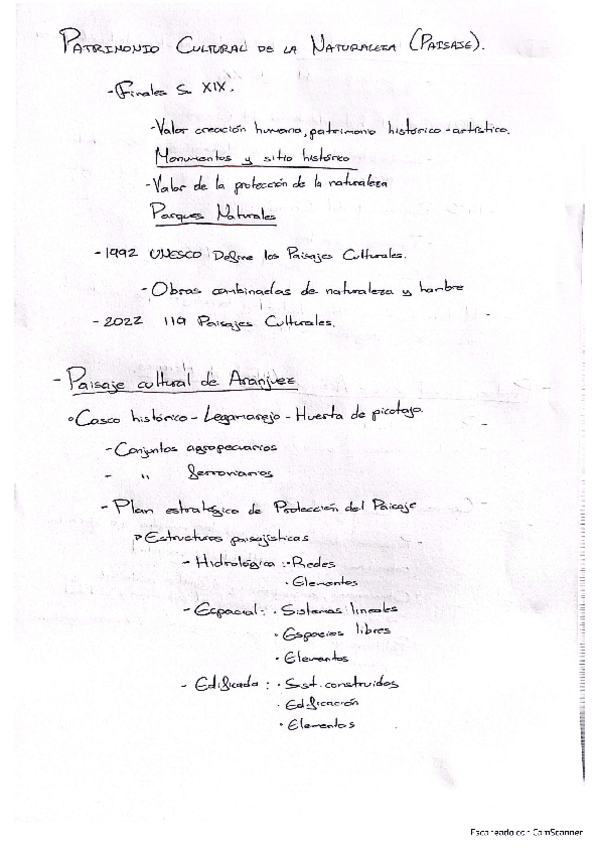 PATRIMONIO CULTURAL DE LA NATURALEZA (PAISAJE).
- Finales S. XIX.
- Valor creación humana, patrimonio histórico-artístico.
Monumentos y sitio histórico
- Valor de la protección de la naturaleza
Parques Naturales
- 1992 UNESCO Define los Paisajes Culturales.
- Obras combinadas de naturaleza y hombre
- 2022 119 Paisajes Culturales.
- Paisaje cultural de Aranjuez
◦ Casco histórico - Legamarejo - Huerta de picotajo.
- Conjuntos agropecuarios
- " ferroviarios
- Plan estratégico de Protección del Paisaje
▹ Estructuras paisajísticas
- Hidrológica: · Redes
· Elementos
- Espacial: · Sistemas lineales
· Espacios libres
· Elementos
- Edificada: · Sist. construidos
· Edificación
· Elementos
Escaneado con CamScanner